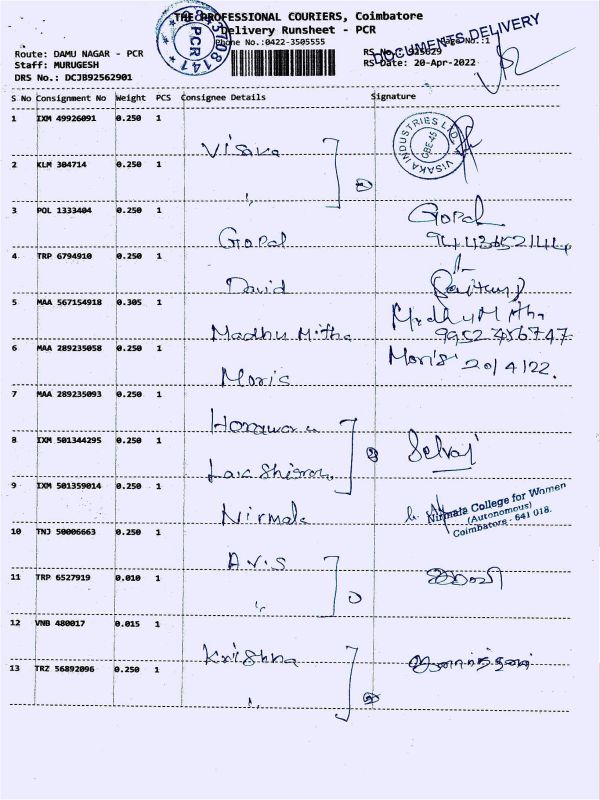 THE PROFESSIONAL COURIERS, Coimbatore
Delivery Runsheet - PCR
Phone No.:0422-3505555
DOCUMENTS DELIVERY
Route: DAMU NAGAR - PCR
Staff: MURUGESH
RS Date: 20-Apr-2022
DRS No.: DCJB92562901
S No Consignment No Weight PCS Consignee Details Signature
1 IXM 49926091 0.250 1 Visaka
VISAKA INDUSTRIES LTD. CBE-45
2 KLM 304714 0.250 1 "
3 POL 1333404 0.250 1 Gopal Gopal
4 TRP 6794910 0.250 1 David
5 MAA 567154918 0.305 1 Madhu Mitha Madhu Mitha
9952486747
6 MAA 289235058 0.250 1 Moris Moris 20/4/22.
7 MAA 289235093 0.250 1
8 IXM 501344295 0.250 1 Selvaj
9 IXM 501359014 0.250 1 Nirmala
Nirmala College for Women
(Autonomous)
Coimbatore - 641 018.
10 TNJ 50006663 0.250 1 A.V.S
11 TRP 6527919 0.010 1 "
12 VNB 480017 0.015 1 Krishna
13 TRZ 56892096 0.250 1 "